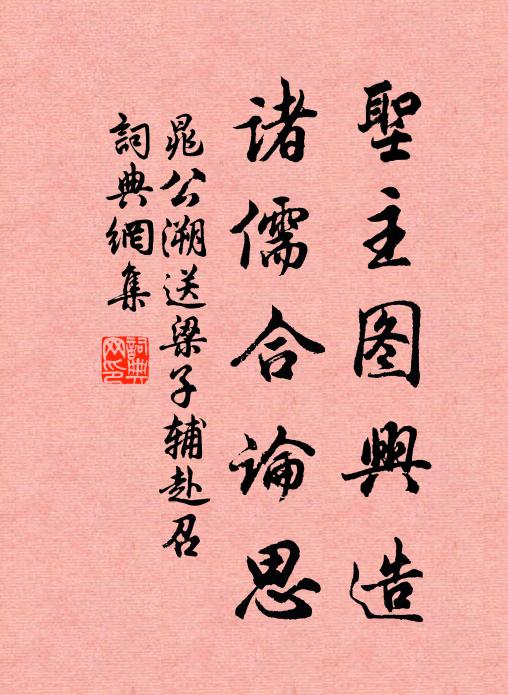 聖主图興造
諸儒合論思
晁公溯送梁子辅赴召
詞典網集
詞典
网印